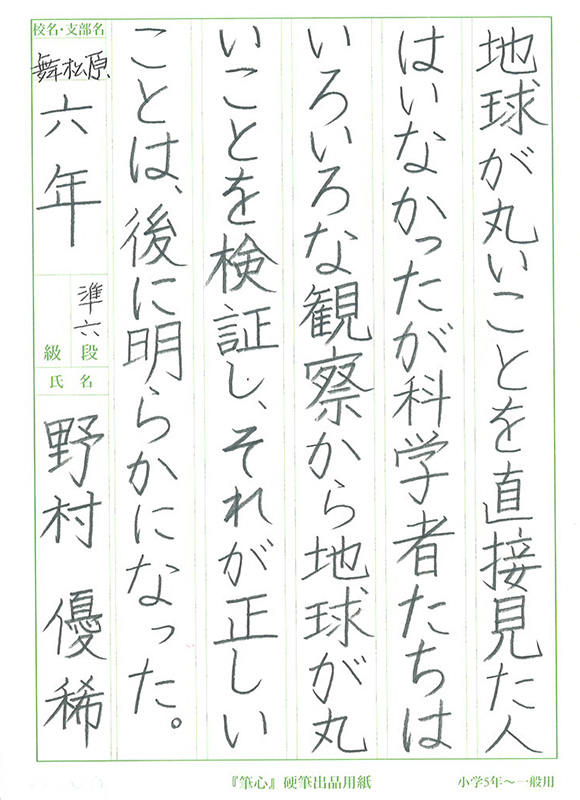 地球が丸いことを直接見た人
はいなかったが科学者たちは
いろいろな観察から地球が丸
いことを検証し、それが正しい
ことは、後に明らかになった。
校名・支部名
舞松原
六年
準六
級 段
氏名
野村 優稀
『筆心』硬筆出品用紙
小学5年〜一般用